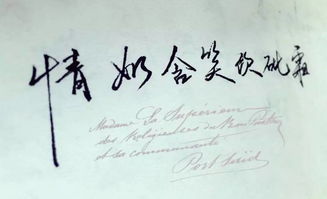 情如含笑饮砒霜
Madame La Supérieure
des Religieuses du Bon Pasteur
et sa communauté
Port Saïd